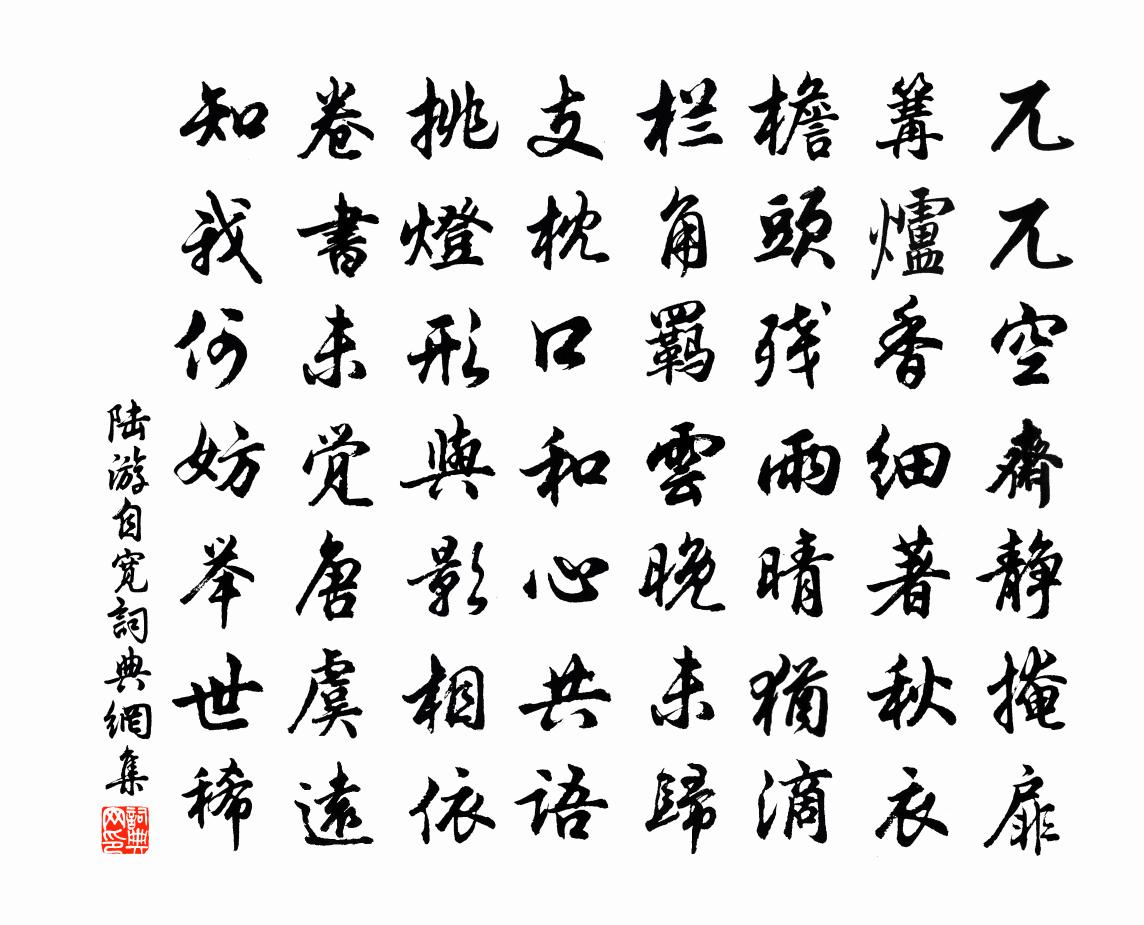 兀兀空齋静掩扉
篝爐香细著秋衣
檐頭残雨晴猶滴
栏角羈雲晚未歸
支枕口和心共語
挑燈形與影相依
卷書未觉唐虞遠
知我何妨举世稀
陆游自寬詞典網集
詞典网印